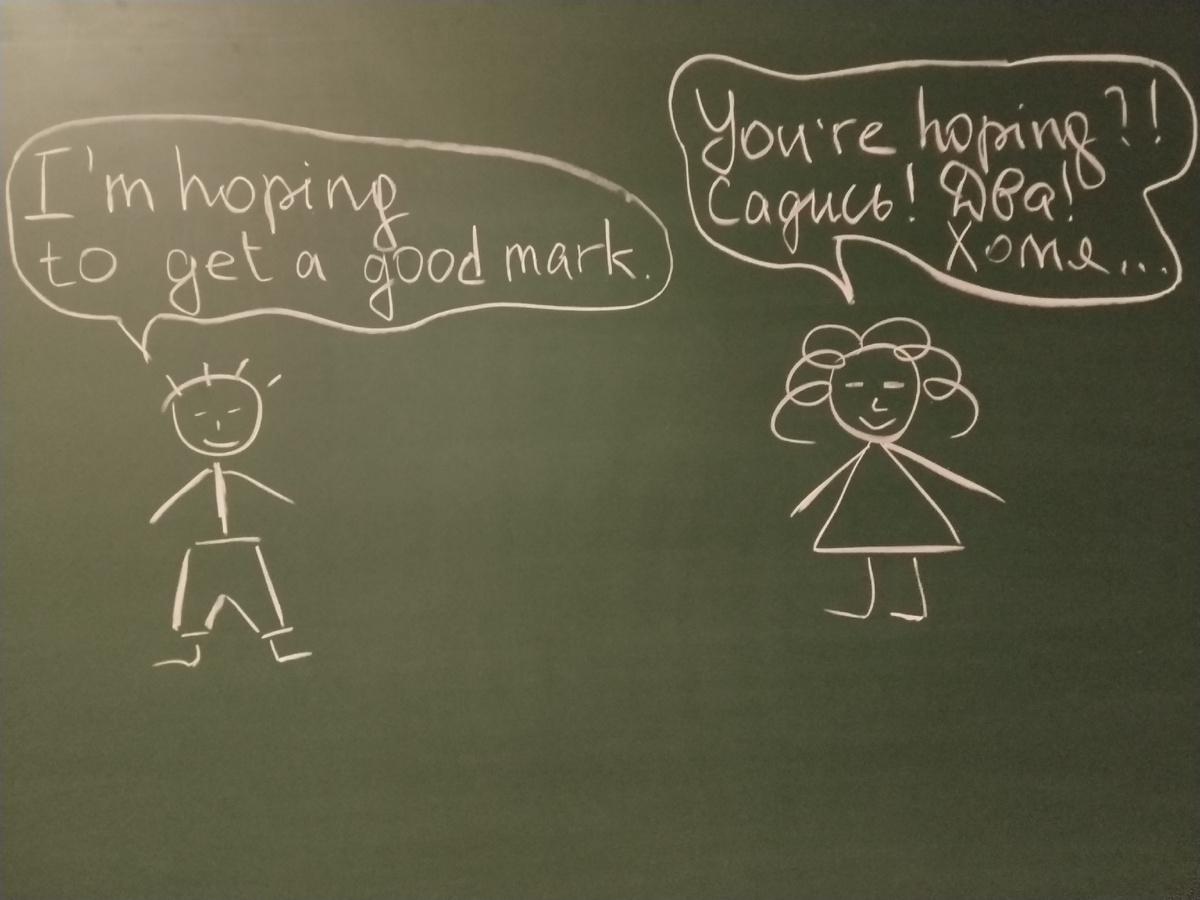 I'm hoping
to get a good mark.
You're hoping?!
Садись! Два!
Хотя...